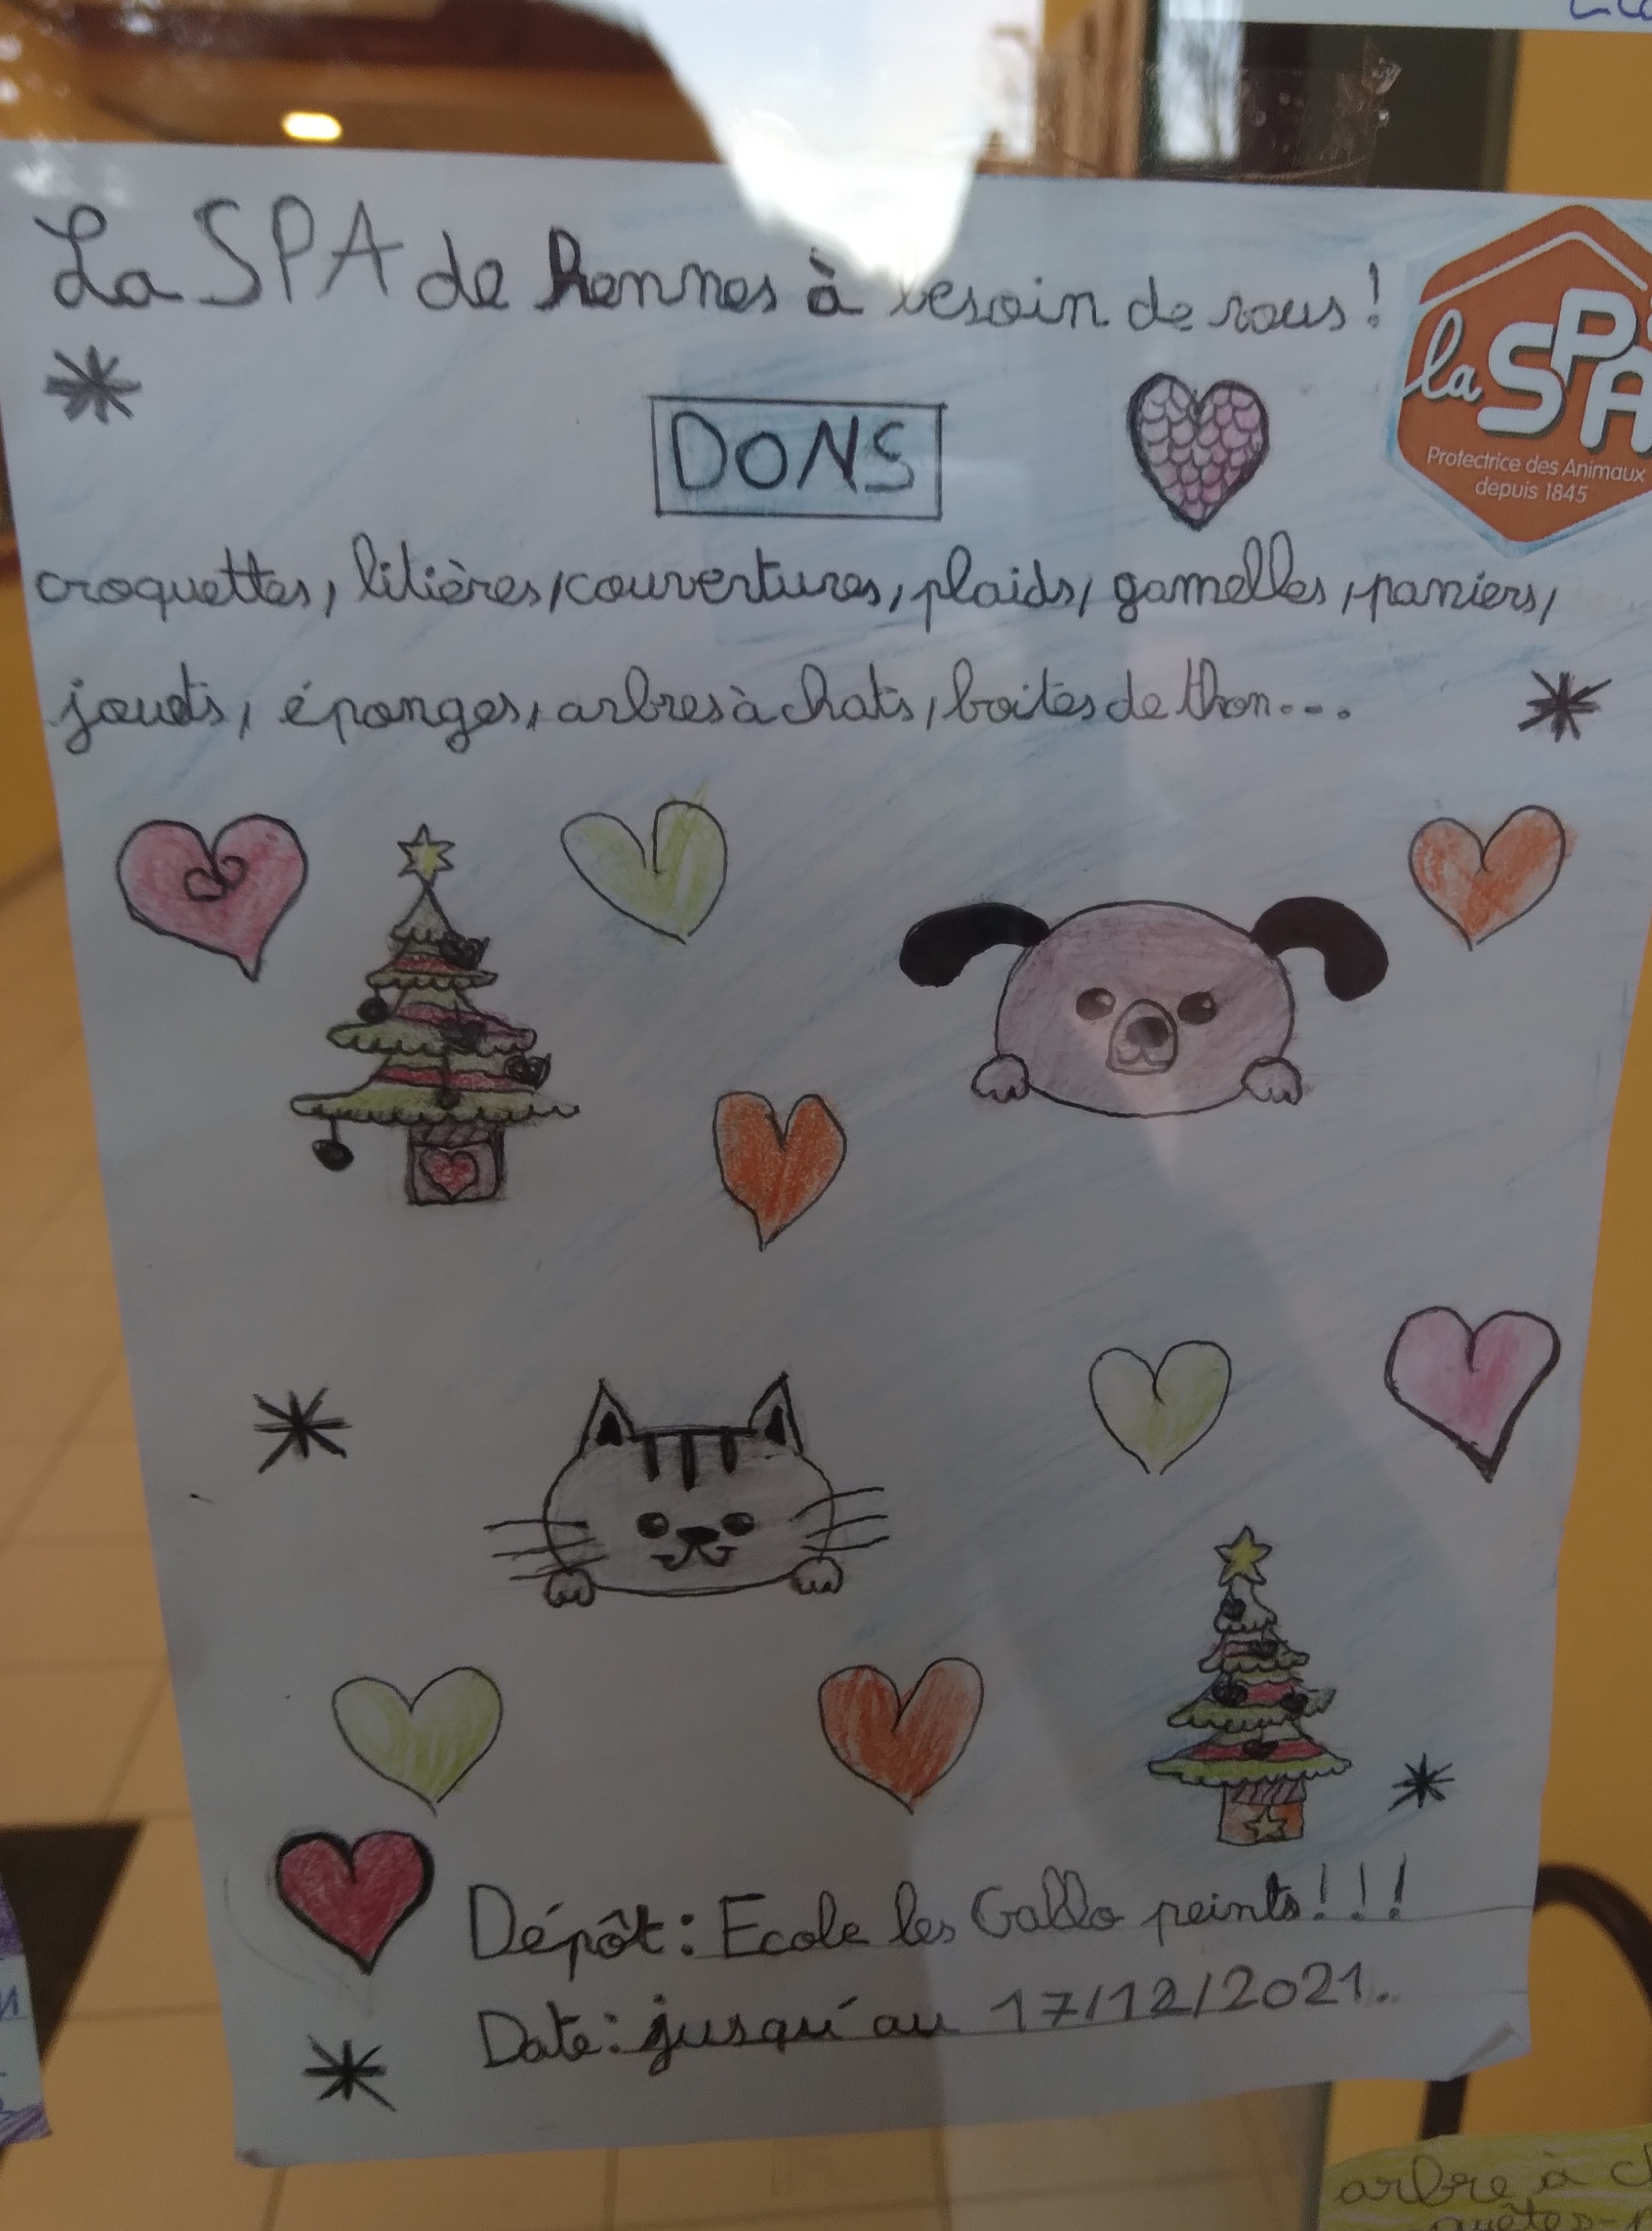 La SPA de Rennes à besoin de vous !
la SPA
Protectrice des Animaux
depuis 1845
DONS
croquettes, litières, couvertures, plaids, gamelles, paniers,
jouets, éponges, arbres à chats, boites de thon...
Dépôt : Ecole les Gallo peints!!!
Date : jusqu'au 17/12/2021.
arbre à